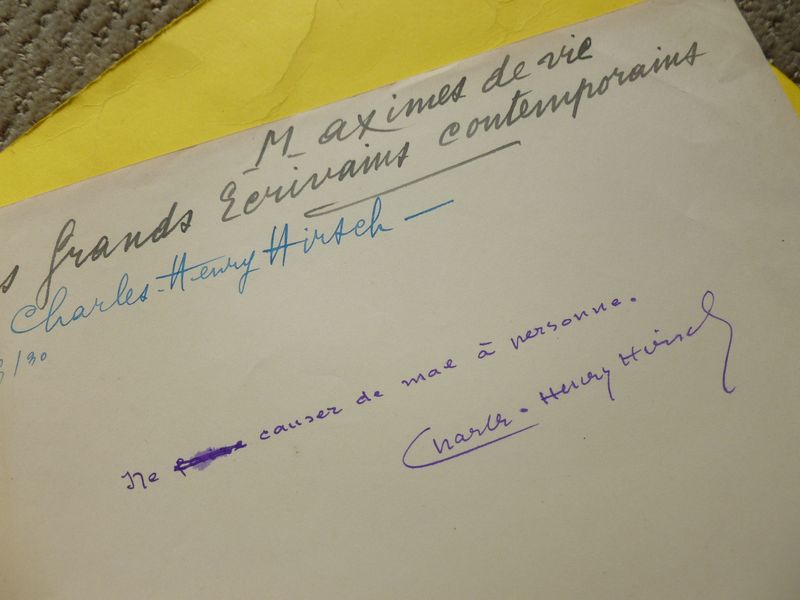 Maximes de vie
s Grands Ecrivains contemporains
Charles-Henry Hirsch —
/30
Ne faire causer de mal à personne.
Charles-Henry Hirsch